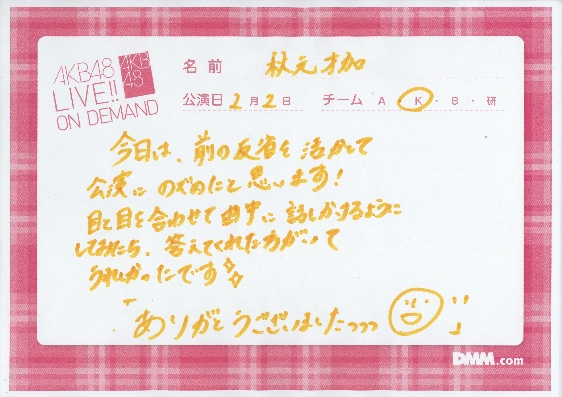 AKB48
LIVE!!
ON DEMAND
AKB
48
名前 秋元才加
公演日 2月2日 チーム A・K・B・研
今日は、前の反省を活かして
公演にのぞめたと思います!
目と目を合わせて曲中に話しかけるように
してみたら、答えてくれた方がいて
うれしかったです
「ありがとうございましたっっっ」
DMM.com